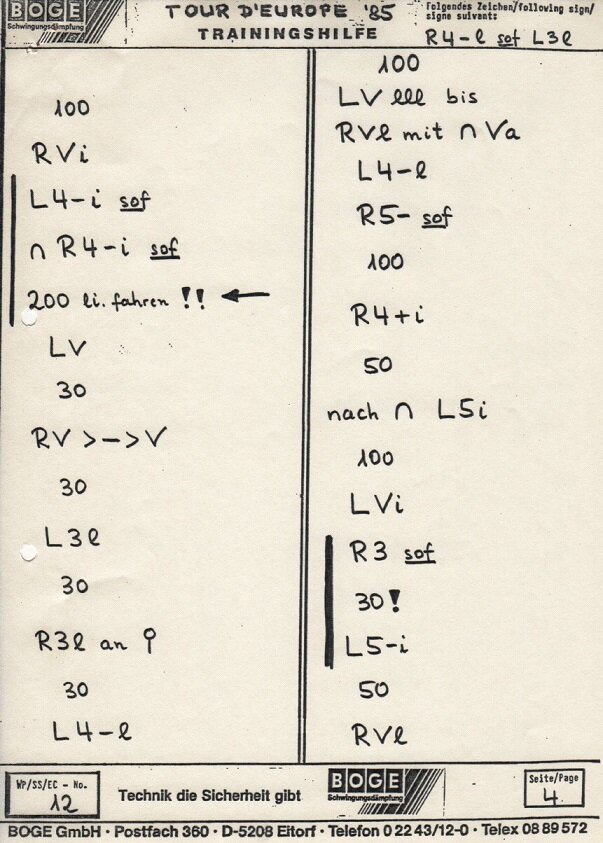 BOGE
Schwingungsdämpfung
TOUR D'EUROPE '85
TRAININGSHILFE
Folgendes Zeichen/following sign/
signe suivant:
R4-l sof L3l
100
RVi
L4-i sof
∩ R4-i sof
200 li. fahren !! ←
LV
30
RV >-> V
30
L3l
30
R3l an
30
L4-l
100
LV lll bis
RVl mit ∩ Va
L4-l
R5- sof
100
R4+i
50
nach ∩ L5i
100
LVi
R3 sof
30!
L5-i
50
RVl
WP/SS/EC - No.
12
Technik die Sicherheit gibt
BOGE
Schwingungsdämpfung
Seite/Page
4
BOGE GmbH · Postfach 360 · D-5208 Eitorf · Telefon 0 22 43/12-0 · Telex 08 89 572